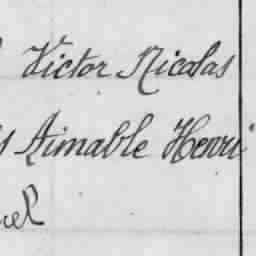 Victor Nicolas
Aimable Henri